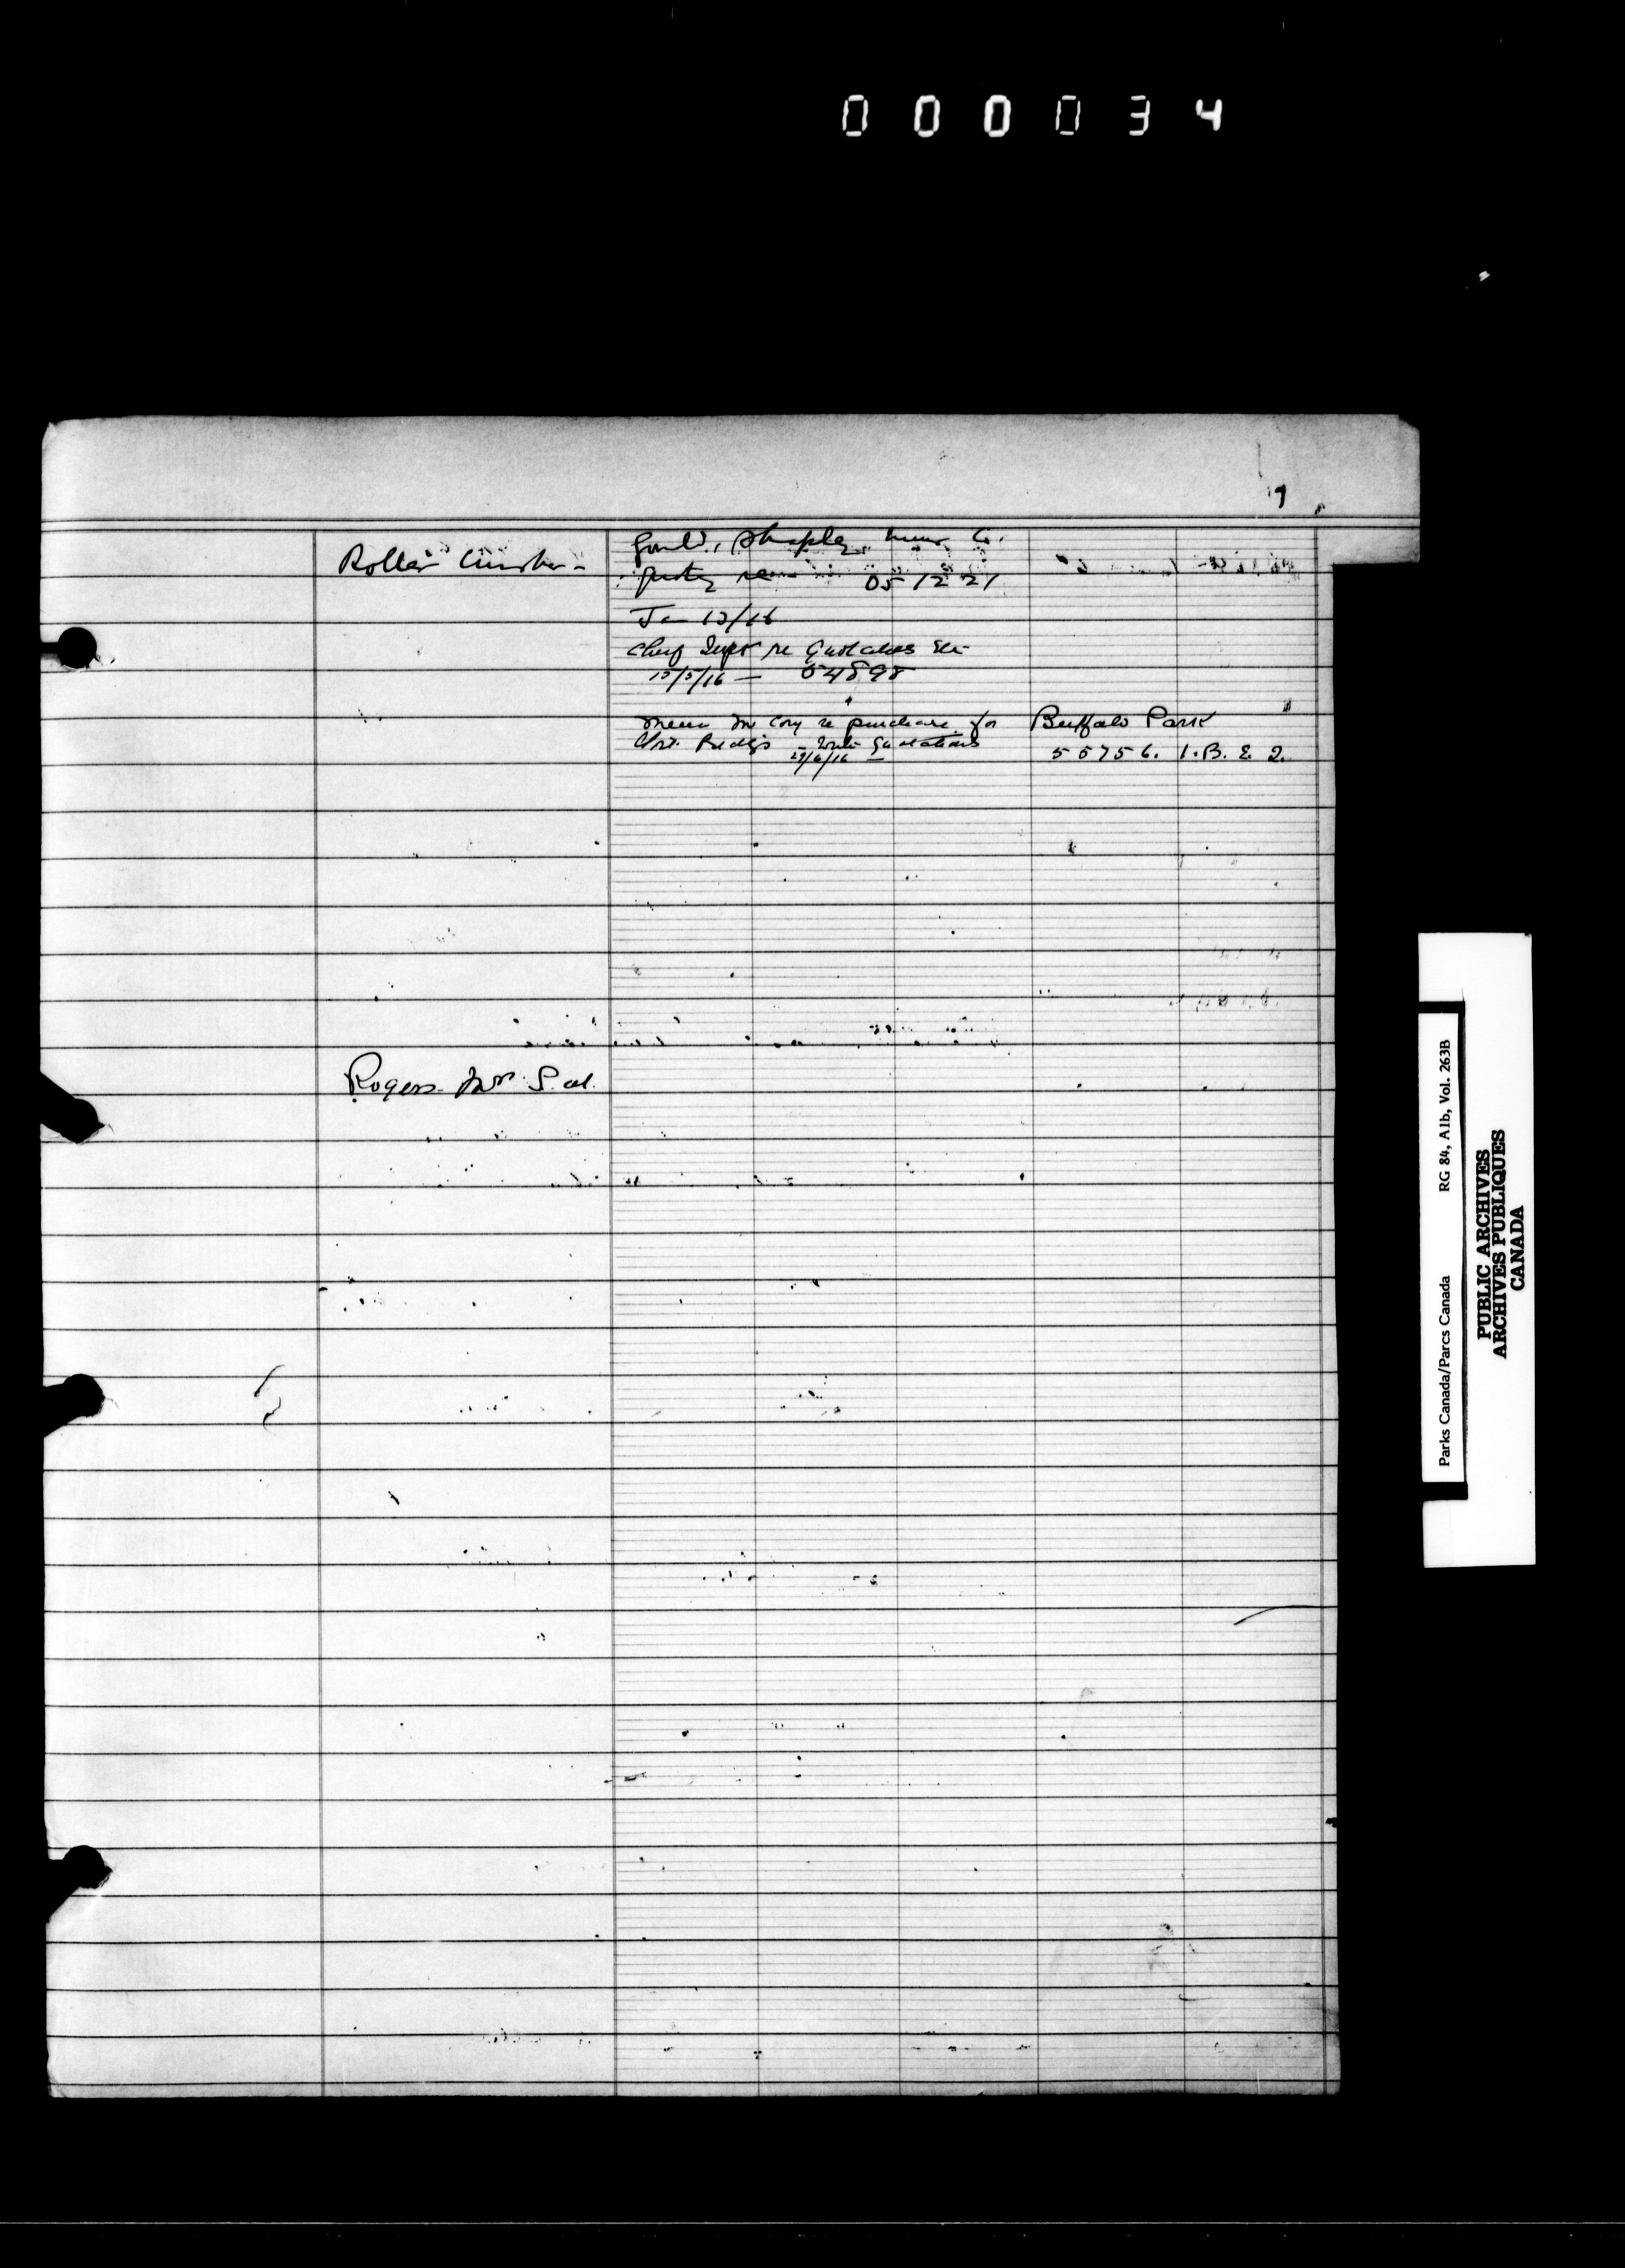 000034
Roller Crusher -
Gould, Shapley, Muir Co.
quoting re 051221
Jan 13/16
Chief Supt re Quotations etc
15/5/16 — 54898
Memo Mr Cory re purchase for Buffalo Park
Quotations 55756. 1.B. & 2.
29/6/16 —
Rogers Mrs S.
Parks Canada/Parcs Canada RG 84, Alb, Vol. 263B
PUBLIC ARCHIVES
ARCHIVES PUBLIQUES
CANADA